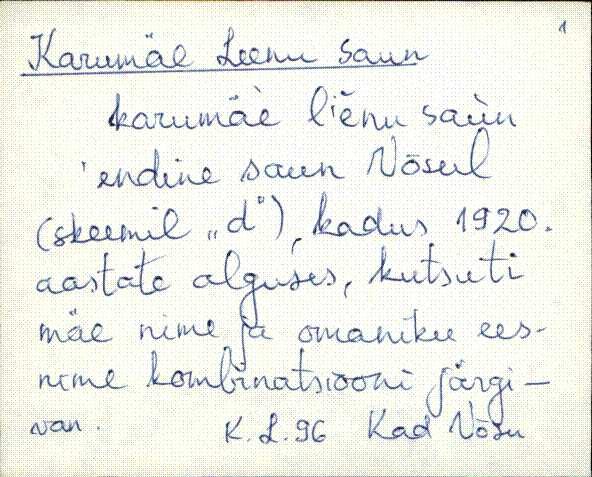 1
Karumäe Leenu saun
karumäè liẽnu saùn
'endine saun Võsul
(skeemil „d"), kadus 1920.
aastate alguses, kutsuti
mäe nime ja omaniku ees-
nime kombinatsiooni järgi–
van. K.L.96 Kad Võsu